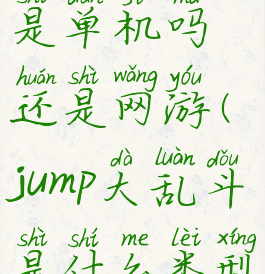 是单机吗
huán shì wǎng yóu
还是网游(
dà luàn dǒu
jump大乱斗
shì shí me lèi xíng
是什么类型